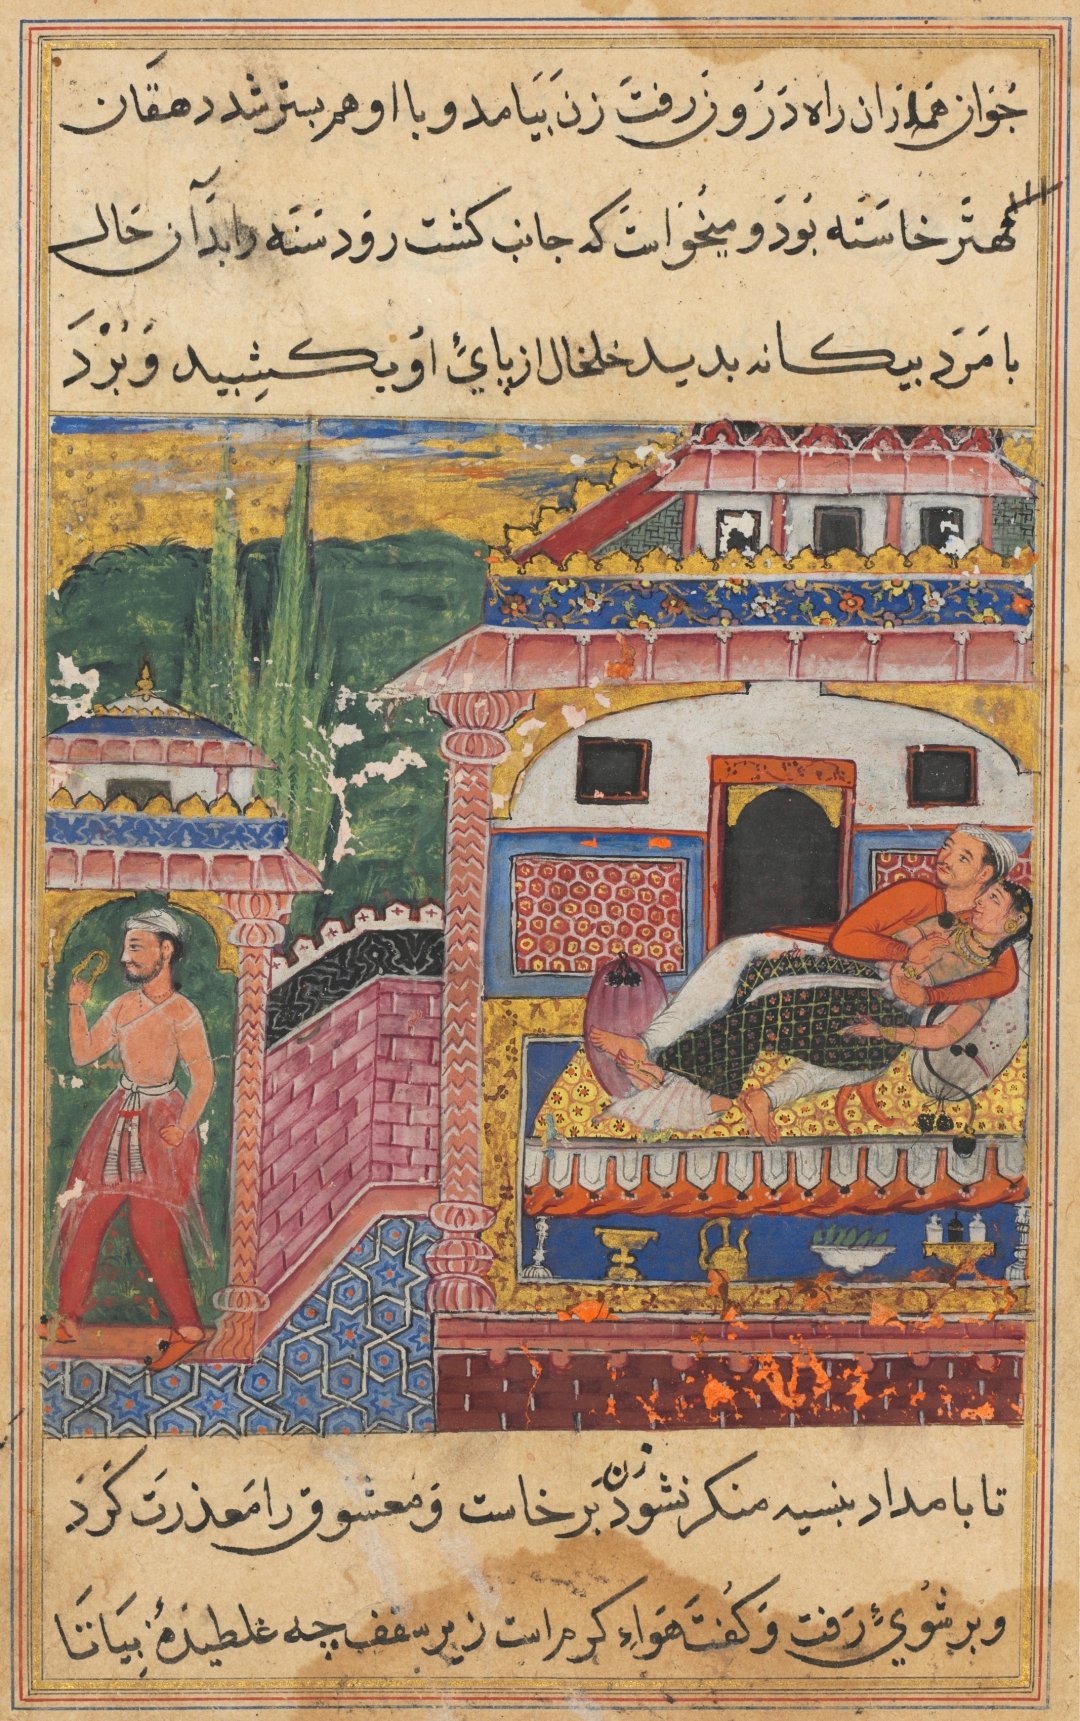 جُوان هم ازان راه دَرُون رفتَ زن بَیَامد و با او هم بستر شد دهقان
مهتَر خاسَته بُودَ و میخُواستَ که جانب کشت رود سَنَه را بَدآن حَال
با مَرد بیکانه بدید خلخال از پایِٔ او بکشِید وَ بُرْدَ
تا بامداد بنسیه منکر نشود زن بَر خاست وَ معشوق را مَعذرتَ کَردَ
و بر شُویِٔ رَفت وَ کفُتَ هَوَاءِ کرم است زیر سقف چه غلطیدهٔ بِیَا تَا